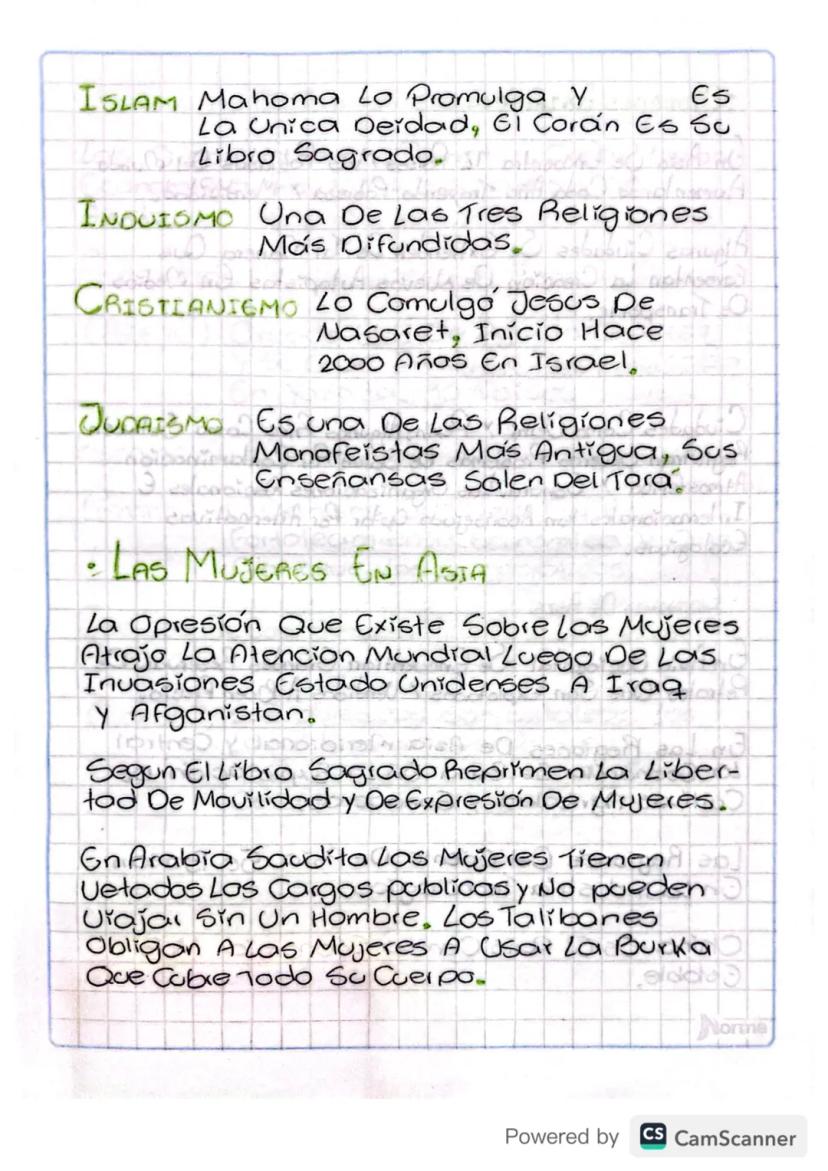 ISLAM Mahoma Lo Promulga Y Es
La Unica Deidad, El Corán Es Su
Libro Sagrado.
INDUISMO Una De Las Tres Religiones
Más Difundidas.
CRISTIANISMO Lo Comulgó Jesus De
Nasaret, Inicio Hace
2000 Años En Israel.
JUDAISMO Es una De Las Religiones
Monofeistas Mas Antigua, Sus
Enseñansas Salen Del Torá.
• LAS MUJERES EN ASIA
La Opresión Que Existe Sobre Las Mujeres
Atrajo La Atencion Mundial Luego De Las
Invasiones Estado Unidenses A Iraq
y Afganistan.
Segun El Libro Sagrado Reprimen La Liber-
tad De Movilidad y De Expresión De Mujeres.
En Arabia Saudita Las Mujeres Tienen
Vetados Los Cargos publicos y No pueden
Viajar Sin Un Hombre. Los Talibanes
Obligan A Las Mujeres A Usar La Burka
Que Cubre Todo Su Cuerpo.
Norma
Powered by CS CamScanner